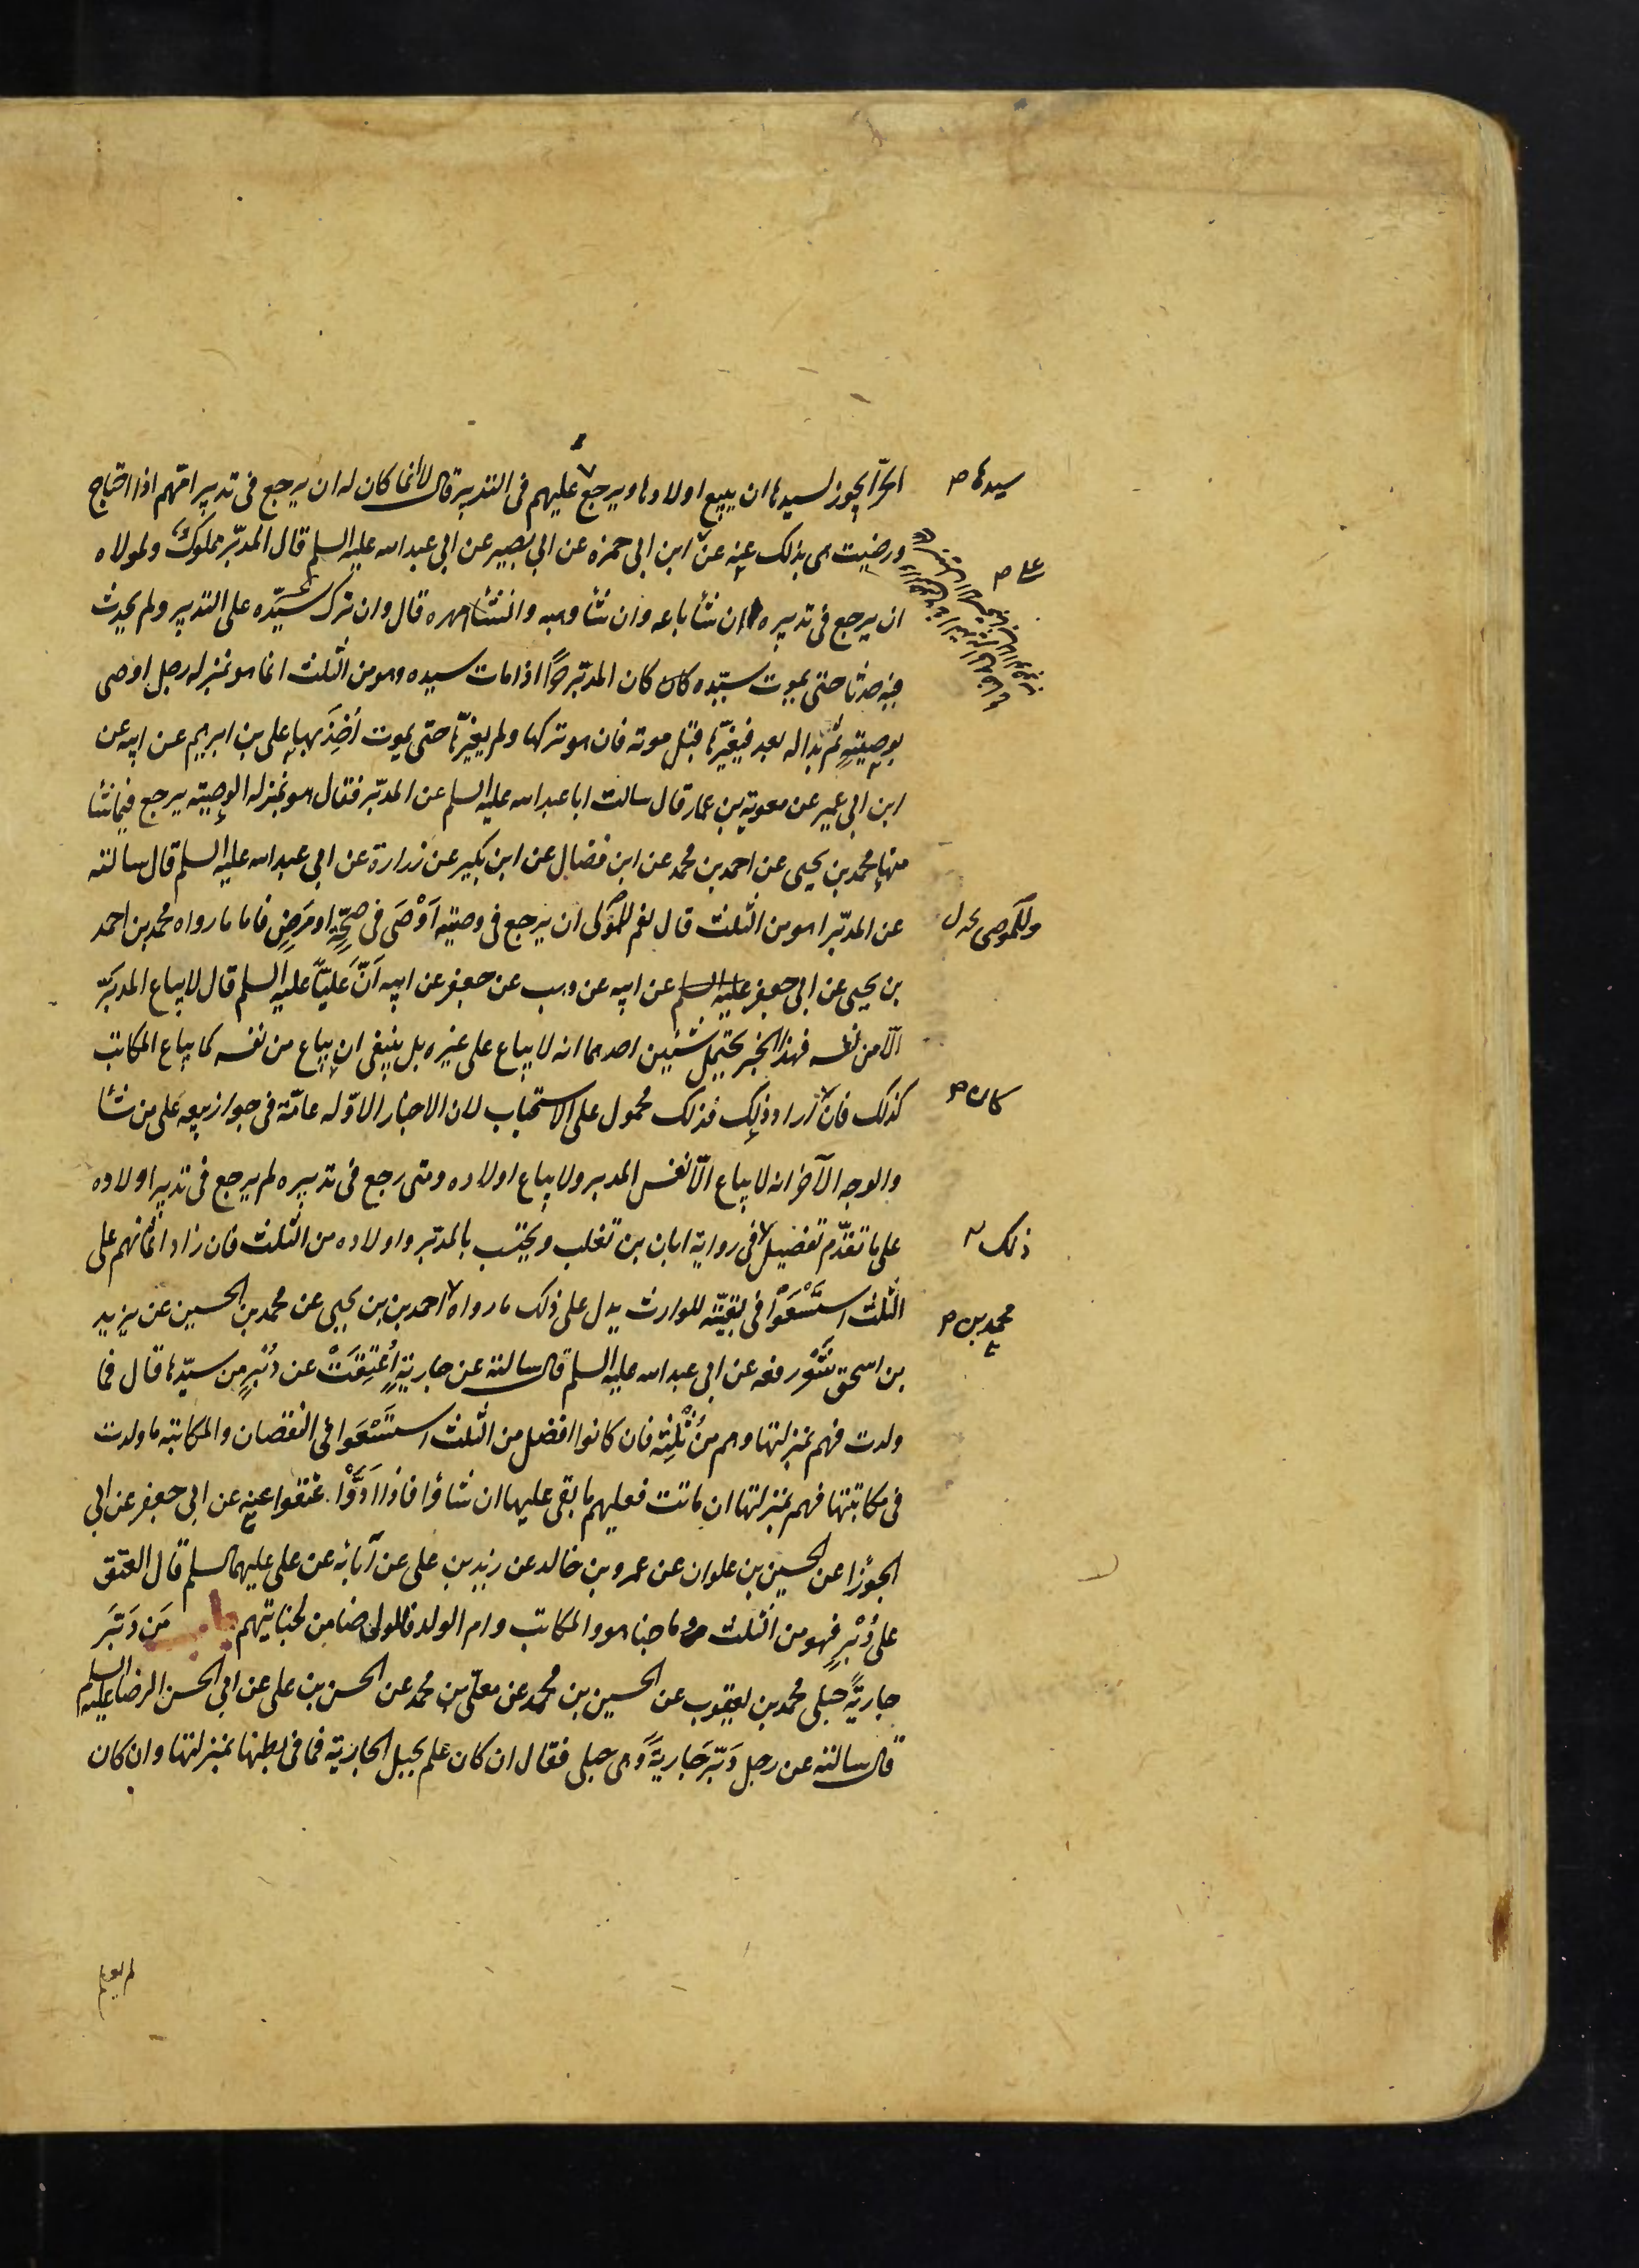 الحر أيجوز لسيدها ان يبيع اولادها ويرجع عليهم فى التدبير قال لا انما كان له ان يرجع فى تدبير امّهم اذا احتاج
ورضيت هى بذلك عنه عن ابن ابى حمزه عن ابى بصير عن ابى عبد الله عليه السلم قال المدبّر مملوكٌ ولمولاه
ان يرجع فى تدبيره ان شأ باعه وان شأ وهبه وان شأ امهره قال وان ترك سيّده على التدبير ولم يحدث
فيه حدثا حتى يموت سيّده كان كان المدبّر حرًّا اذا مات سيده وهو من الثلث انما هو بمنزله رجل اوصى
بوصيّتهٍ ثم بدا له بعد فيغيّرها قبل موته فان هو تركها ولم يغيّرها حتى يموت أخِذَ بها على بن ابرهيم عن ابيه عن
ابن ابى عمير عن معوية بن عمار قال سالت ابا عبد الله عليه السلم عن المدبّر فقال هو بمنزله الوصيّته يرجع فيما شأ
منها محمد بن يحيى عن احمد بن محمد عن ابن فضال عن ابن بكير عن زرارة عن ابى عبد الله عليه السلم قال سالته
عن المدبّر اهو من الثّلث قال نعم للموصى ان يرجع فى وصيّته اَوْصَى فى صِحَّةٍ او مَرَضٍ فاما ما رواه محمد بن احمد
بن يحيى عن ابى جعفر عليه السلم عن ابيه عن وهب عن جعفر عن ابيه اَنَّ عَليًّا عليه السلم قال لا يباع المدبَّر
الّا من نفسه فهذا الخبر يحتمل شيئين احدهما انه لا يباع على غيره بل ينبغى ان يباع من نفسه كما يباع المكاتب
كذلك فان اراد ذلك فذلك محمول على الاستحباب لان الاخبار الاوّله عامّة فى جواز بيعه على من شأ
والوجه الآخر انه لا يباع الّا نفس المدبر ولا يباع اولاده ومتى رجع فى تدبيره لم يرجع فى تدبير اولاده
على ما تقدّم تفصيل فى رواية ابان بن تغلب ويحتسب بالمدبّر واولاده من الثلث فان زاد اثمانهم على
الثلث استَسْعَوْا فى بقيّته للوارث يدل على ذلك ما رواه احمد بن بن يحيى عن محمد بن الحسين عن يزيد
بن اسحق شَعَر رفعه عن ابى عبد الله عليه السلم قال سالته عن جارية اُعتِقَتْ عن دُبُرٍ من سيّدها قال فما
ولدت فهم بمنزلتها وهم من ثُلُثِه فان كانوا افضل من الثلث استَسْعَوا فى النقصان والمكاتبه ما ولدت
فى مكاتبتها فهم بمنزلتها ان ماتت فعليهم ما بقى عليها ان شاؤا فاذا ادَّوْا عتقوا عنه عن ابى جعفر عن ابى
الجوزا عن الحسين بن علوان عن عمرو بن خالد عن زيد بن على عن آبائه عن على عليهم السلم قال العتق
على دُبُرٍ فهو من الثلث وما جنا هو والمكاتب وام الولد فالمولى ضامن لجنايتهم باب مَن دَبَّرَ
جاريةً حبلى محمد بن يعقوب عن الحسين بن محمد عن معلى بن محمد عن الحسن بن على عن ابى الحسن الرضا عليه السلم
قال سالته عن رجل دَبّر جاريةً وهى حبلى فقال ان كان علم بحبل الجارية فما فى بطنها بمنزلتها وان كان
لم يعلم
سيدها ص
على ص
وللموصى خ ل
كان ص
ذلك
محمد بن ص